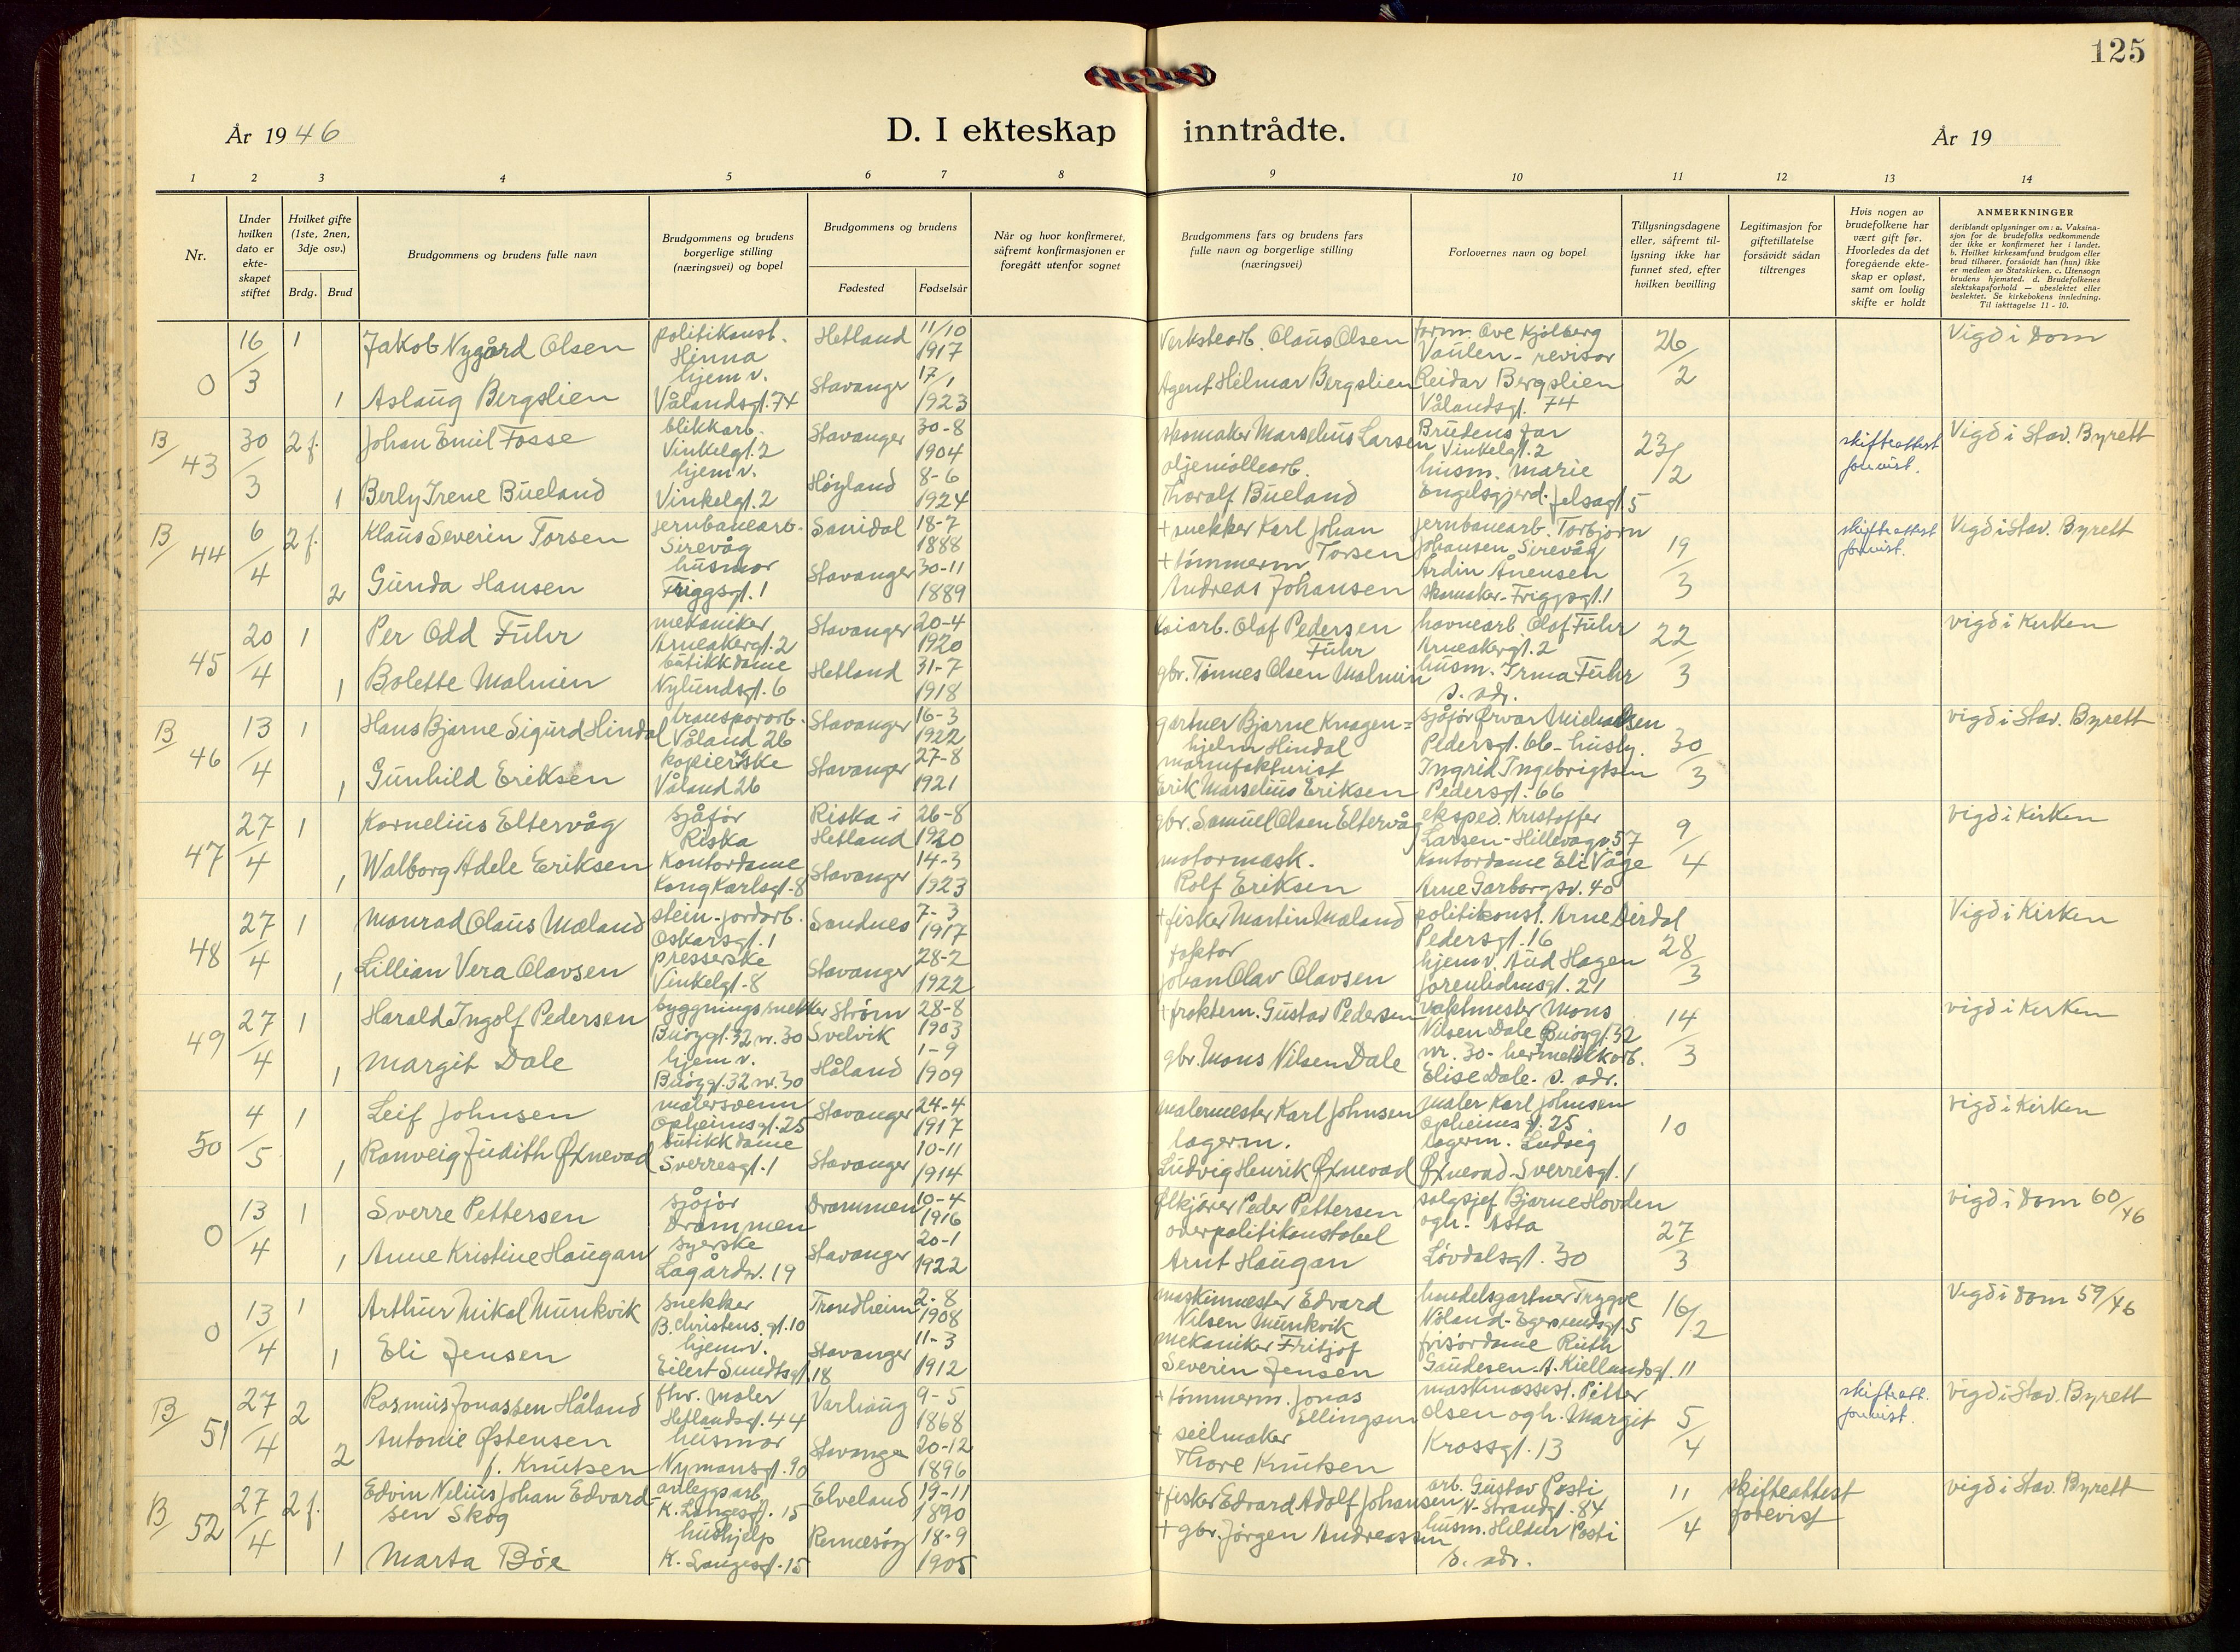 125
År 1946
D. I ekteskap inntrådte.
År 19
1 2 3 4 5 6 7 8 9 10 11 12 13 14
Nr.
Under hvilken dato er ekte-skapet stiftet
Hvilket gifte (1ste, 2nen, 3dje osv.)
Brdg. Brud
Brudgommens og brudens fulle navn
Brudgommens og brudens borgerlige stilling (næringsvei) og bopel
Brudgommens og brudens
Fødested Fødselsår
Når og hvor konfirmeret, såfremt konfirmasjonen er foregått utenfor sognet
Brudgommens fars og brudens fars fulle navn og borgerlige stilling (næringsvei)
Forlovernes navn og bopel
Tillysningsdagene eller, såfremt til-lysning ikke har funnet sted, efter hvilken bevilling
Legitimasjon for giftetillatelse forsåvidt sådan tiltrenges
Hvis nogen av brudefolkene har vært gift før. Hvorledes da det foregående ekte-skap er opløst, samt om lovlig skifte er holdt
ANMERKNINGER
deriblandt oplysninger om: a. Vaksina-sjon for de brudefolks vedkommende der ikke er konfirmeret her i landet. b. Hvilket kirkesamfund brudgom eller brud tilhører, forsåvidt han (hun) ikke er medlem av Statskirken. c. Utensogn brudens hjemsted. d. Brudefolkenes slektskapsforhold — ubeslektet eller beslektet. Se kirkebokens innledning. Til iakttagelse 11 - 10.
0 16/3 1 Jakob Nygård Olsen politikonst. Hinna Hetland 11/10 1917 Verkstearb. Olaus Olsen form. Ove Kjølberg Vaulen - revisor 26/2 Vigd i Dom
1 Aslaug Bergslien hjemv. Vålandsgt. 74 Stavanger 17/1 1923 Agent Hilmar Bergslien Reidar Bergslien Vålandsgt. 74
B/43 30/3 2 f. Johan Emil Fosse blikkarb. Vinkelgt. 2 Stavanger 30-8 1904 skomaker Marselius Larsen Brudens far Vinkelgt. 2 23/2 skifteattest forevist. Vigd i Stav. Byrett
1 Berly Irene Bueland hjemv. Vinkelgt. 2 Høyland 8-6 1924 oljemøllearb. Thoralf Bueland husm. Marie Engelsgjerd. Jelsagt. 5
B/44 6/4 2 f. Klaus Severin Torsen jernbanearb. Sirevåg Sanidal 18-7 1888 + snekker Karl Johan Torsen jernbanearb. Torbjørn Johansen Sirevåg 19/3 skifteattest forevist. Vigd i Stav. Byrett
2 Gunda Hansen husmor Friggsgt. 1 Stavanger 30-11 1889 + tømmerm. Andreas Johansen Ardin Anensen skomaker - Friggsgt. 1
45 20/4 1 Per Odd Führ mekaniker Arneakergt. 2 Stavanger 20-4 1920 kaiarb. Olaf Pedersen Führ havnearb. Olaf Führ Arneakergt. 2 22/3 vigd i Kirken
1 Bolette Malmin butikkdame Nylundsgt. 6 Hetland 31-7 1918 gbr. Tønnes Olsen Malmin husm. Irma Führ s. adr.
B/46 13/4 1 Hans Bjarne Sigurd Hindal transporarb. Våland 26 Stavanger 16-3 1922 gartner Bjarne Knagen=hjelm Hindal sjåfør Ørvar Michaelsen Pedersgt. 66 - husb. 30/3 vigd i Stav. Byrett
1 Gunhild Eriksen kopierske Våland 26 Stavanger 27-8 1921 manufakturist Erik Marselius Eriksen Ingrid Ingebrigtsen Pedersgt. 66
47 27/4 1 Kornelius Eltervåg sjåfør Riska Riska i Hetland 26-8 1920 gbr. Samuel Olsen Eltervåg eksped. Kristoffer Larsen - Hillevågv. 57 9/4 vigd i Kirken
1 Walborg Adele Eriksen Kontordame Kong Karlsgt. 8 Stavanger 14-3 1923 motormask. Rolf Eriksen Kontordame Eli Våge Arne Garborgsv. 40
48 27/4 1 Monrad Olaus Mæland stein-jordarb. Oskarsgt. 1 Sandnes 7-3 1917 + fisker Martin Mæland politikonst. Arne Dirdal Pedersgt. 16 28/3 Vigd i Kirken
1 Lillian Vera Olavsen presserske Vinkelgt. 8 Stavanger 28-2 1922 faktor Johan Olav Olavsen hjemv. Aud Hagen Jorenholmsgt. 21
49 27/4 1 Harald Ingolf Pedersen byggningssnekker Buøygt. 32 nr. 30 Strøm Svelvik 28-8 1903 + froktem. Gustav Pedersen vaktmester Mons Nilsen Dale Buøygt. 32 nr. 30 - 14/3 vigd i Kirken
1 Margit Dale hjemv. Buøygt. 32 nr. 30 Håland 1-9 1909 gbr. Mons Nilsen Dale hermetikkarb. Elise Dale. s. adr.
50 4/5 1 Leif Johnsen malersvenn Opheimsgt. 25 Stavanger 24-4 1917 malermester Karl Johnsen maler Karl Johnsen Opheimsgt. 25 10 vigd i Kirken
1 Ranveig Judith Øxnevad butikkdame Sverresgt. 1 Stavanger 10-11 1914 lagerm. Ludvig Henrik Øxnevad lagerm. Ludvig Øxnevad - Sverresgt. 1
0 13/4 1 Sverre Pettersen sjåfør Drammen Drammen 10-4 1916 ølkjører Peder Pettersen salgsjef Bjarne Hovden 27/3 vigd i Dom 60/46
1 Anne Kristine Haugan syerske Lagårdsv. 19 Stavanger 20-1 1922 overpolitikonstabel Arnt Haugan ogh. Asta Løvdalsgt. 30
0 13/4 1 Arthur Mikal Munkvik snekker B. Christens. gt. 10 Trondheim 2-8 1908 maskinmester Edvard Nilsen Munkvik handelsgartner Trygve Nåland - Egersundsgt. 5 16/2 Vigd i Dom 59/46
1 Eli Jensen hjemv. Eilert Sundtsgt. 18 Stavanger 11-3 1912 mekaniker Fritjof Severin Jensen frisørdame Ruth Gaudesen. A. Kiellandsgt. 11
B/51 27/4 2 Rasmus Jonassen Håland fhv. maler Hetlandsgt. 44 Varhaug 9-5 1868 + tømmerm. Jonas Ellingsen maskinassist. Pitter Olsen ogh. Margit 5/4 skifteatt. forevist. vigd i Stav. Byrett
2 Antonie Østensen f. Knutsen husmor Nymansgt. 90 Stavanger 20-12 1896 + seilmaker Thore Knutsen Krossgt. 13
B/52 27/4 2 f. Edvin Nelius Johan Edvardsen Skog anleggsarb. K. Langesgt. 15 Elveland 19-11 1890 + fisker Edvard Adolf Johansen arb. Gustav Posti N-Strandgt. 84 11/4 skifteattest forevist vigd i Stav. Byrett
1 Marta Bøe hushjelp K. Langesgt. 15 Rennesøy 18-9 1905 + gbr. Jørgen Andreassen husm. Hildur Posti s. adr.